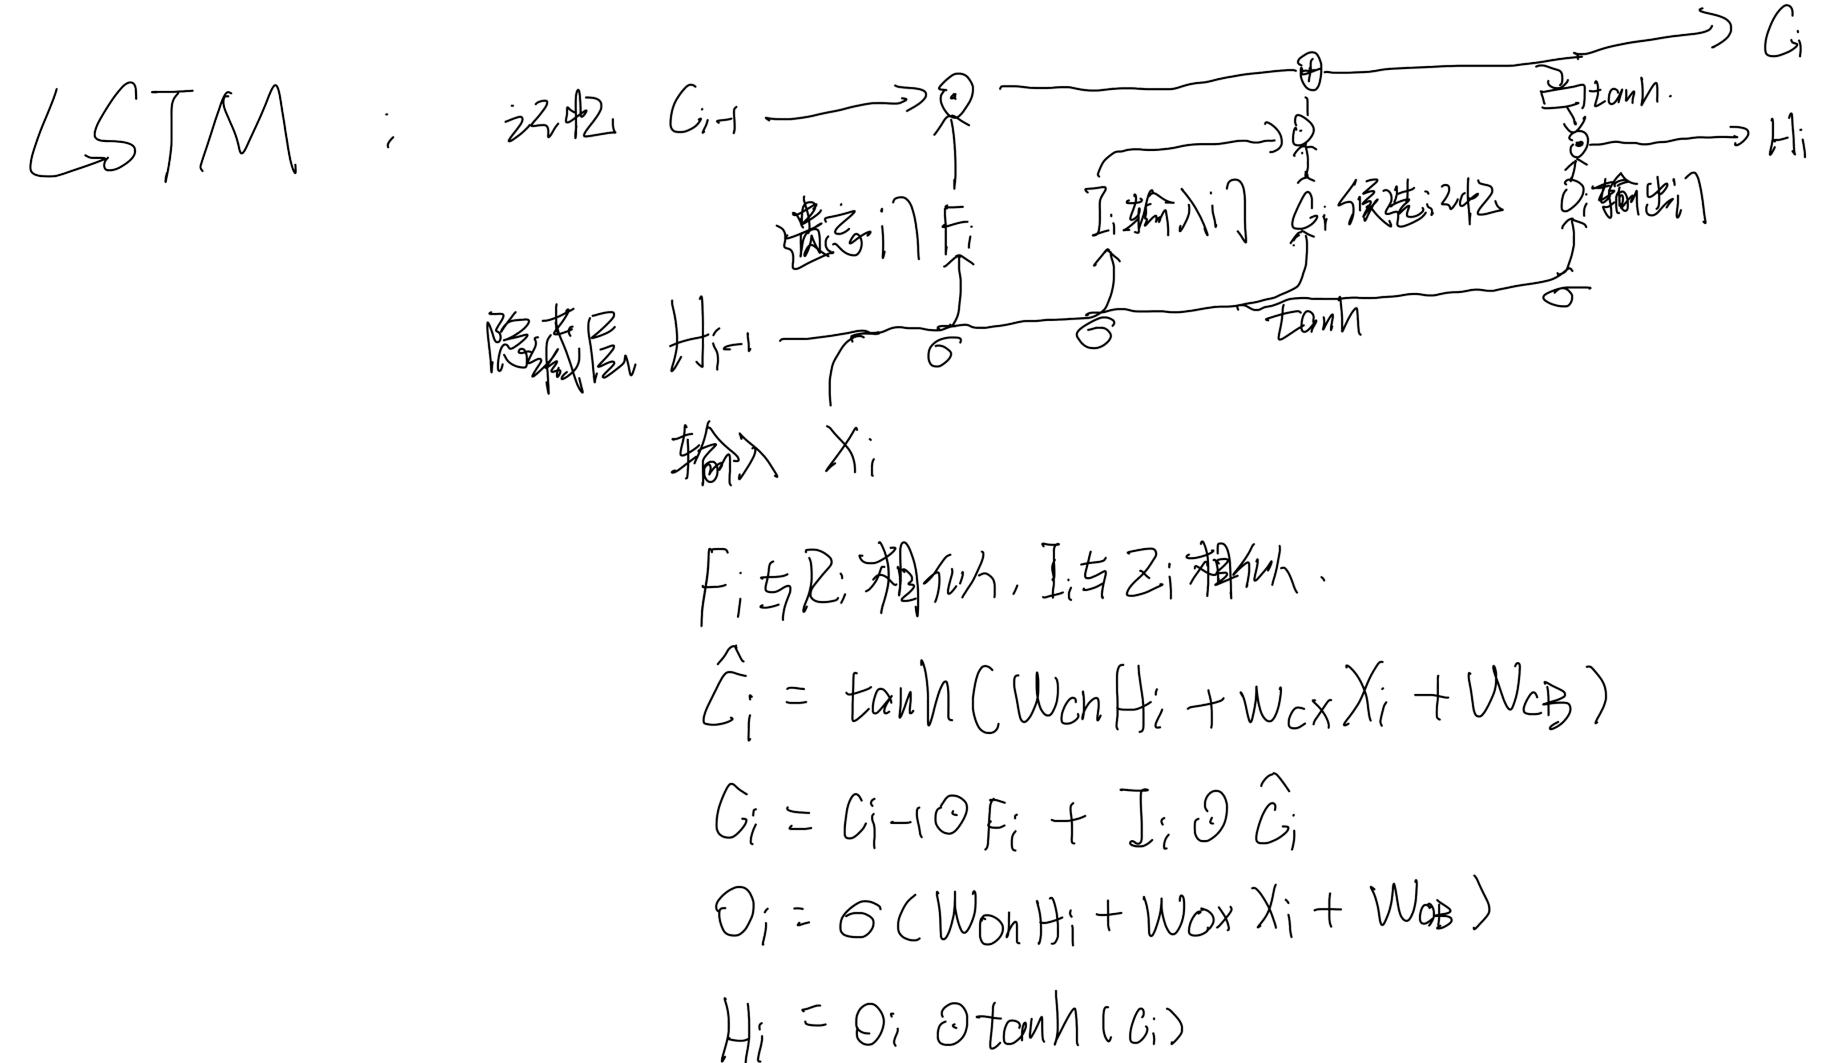 LSTM : 记忆 Ci-1 ⊙ ⊕ Ci
tanh.
⊙ Hi
遗忘门 Fi Ii 输入门 Ci 候选记忆 Oi 输出门
隐藏层 Hi-1 σ σ tanh σ
输入 Xi
Fi与Ri相似, Ii与Zi相似.
Ĉi = tanh(WchHi + WcxXi + WCB)
Ci = Ci-1⊙Fi + Ii⊙Ĉi
Oi = σ(WOhHi + WOxXi + WOB)
Hi = Oi ⊙tanh(Ci)